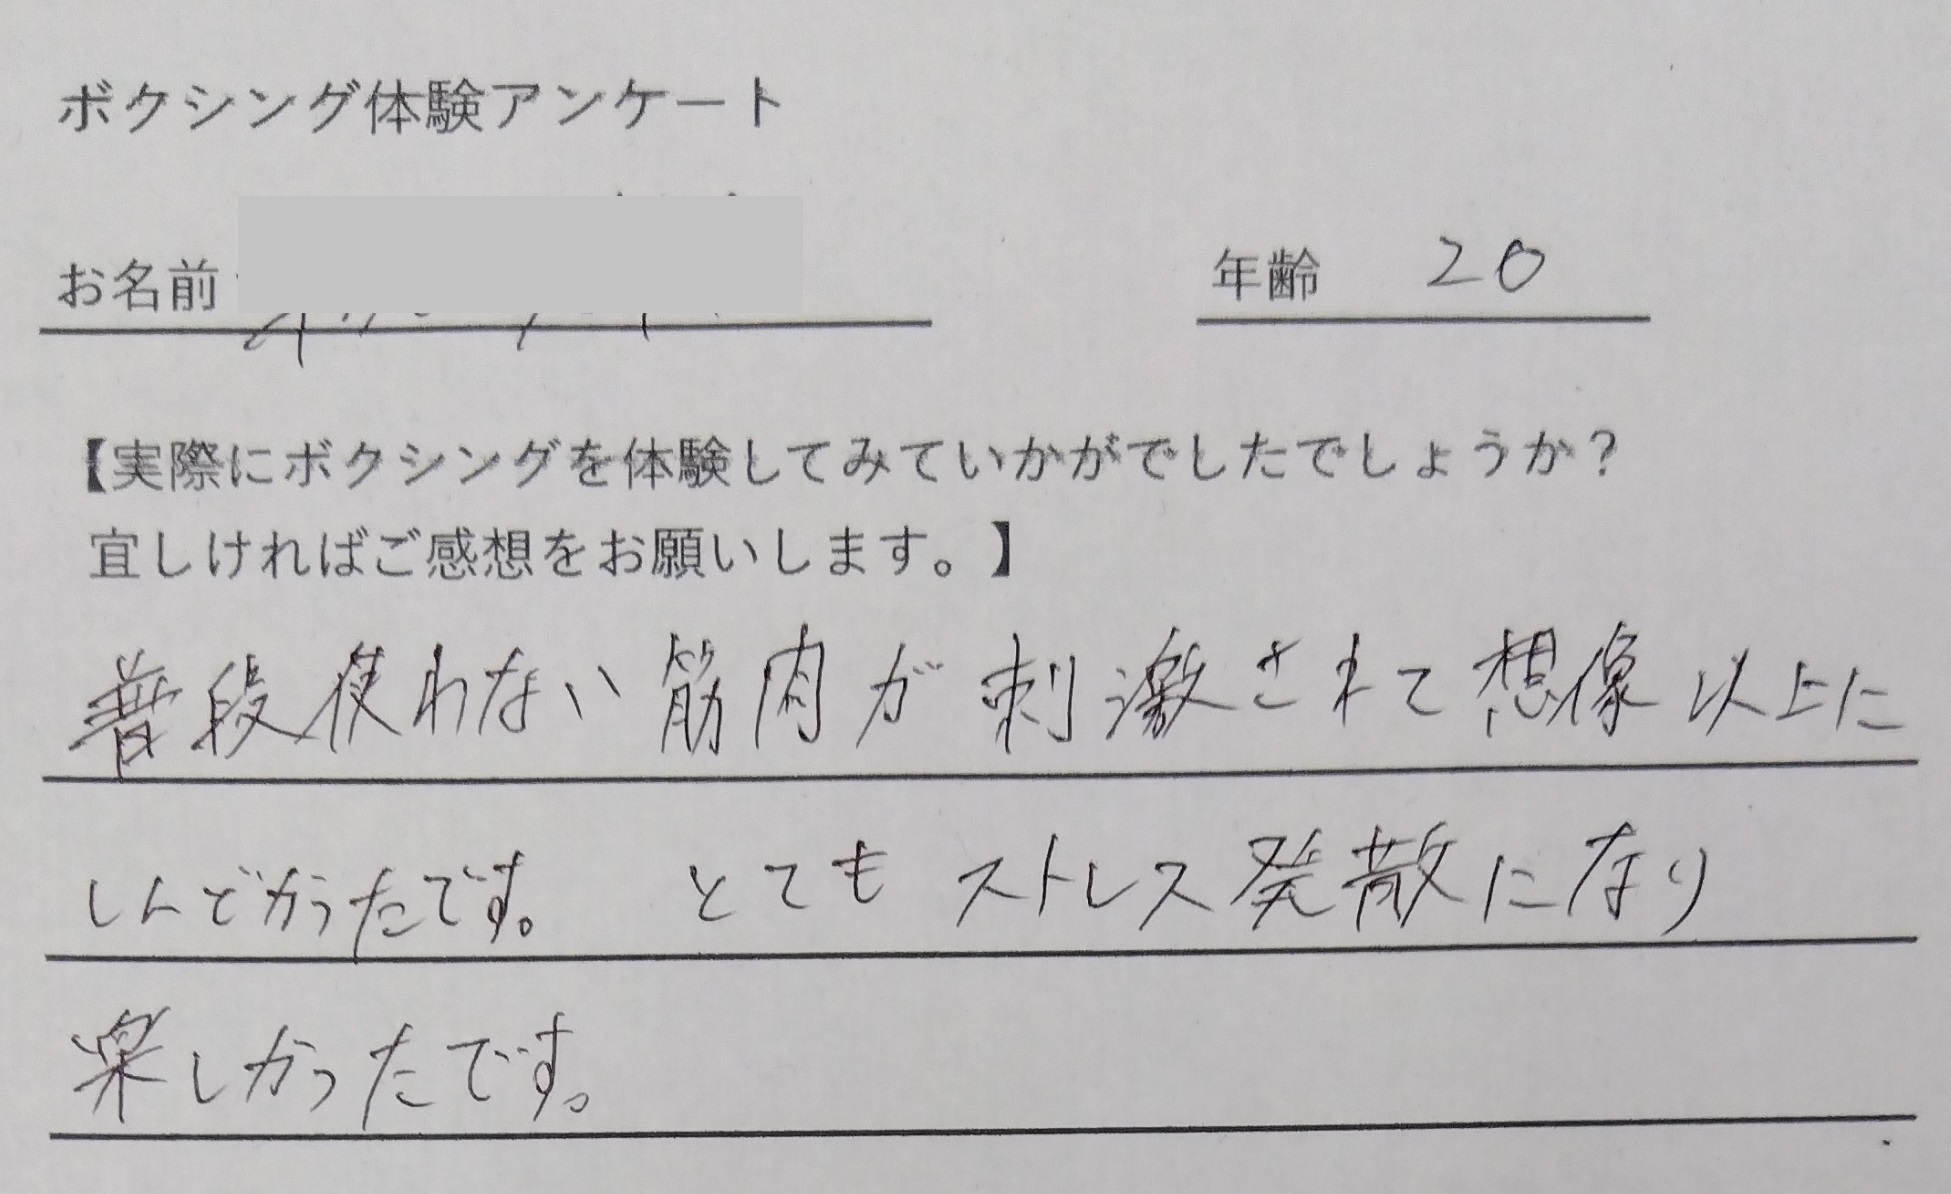 ボクシング体験アンケート
お名前 年齢 20
【実際にボクシングを体験してみていかがでしたでしょうか？
宜しければご感想をお願いします。】
普段使わない筋肉が刺激されて想像以上に
しんどかったです。 とても ストレス発散になり
楽しかったです。